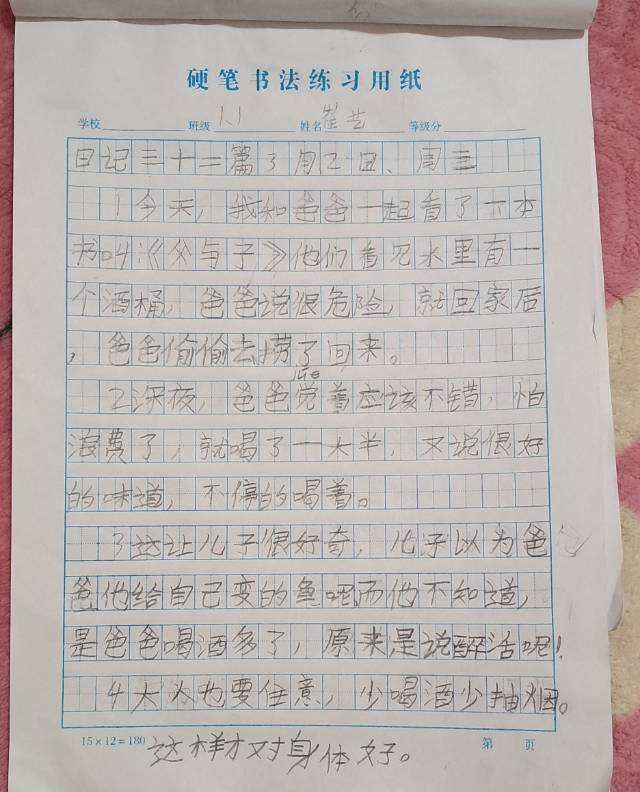 硬笔书法练习用纸
学校 班级 1.1 姓名 崔艺 等级分
日记三十二篇3月2日、周三
1今天，我和爸爸一起看了一本
书叫《父与子》他们看见水里有一
个酒桶，爸爸说很危险，就回家后
，爸爸偷偷去捞了回来。
2深夜，爸爸觉着应该不错，怕
浪费了，就喝了一大半，又说很好
的味道，不停的喝着。
3这让儿子很好奇，儿子以为爸
爸他给自己变的鱼呢而他不知道，
是爸爸喝酒多了，原来是说醉话呢！
4大人也要住意，少喝酒少抽烟。
15×12=180 第 页
这样才对身体好。